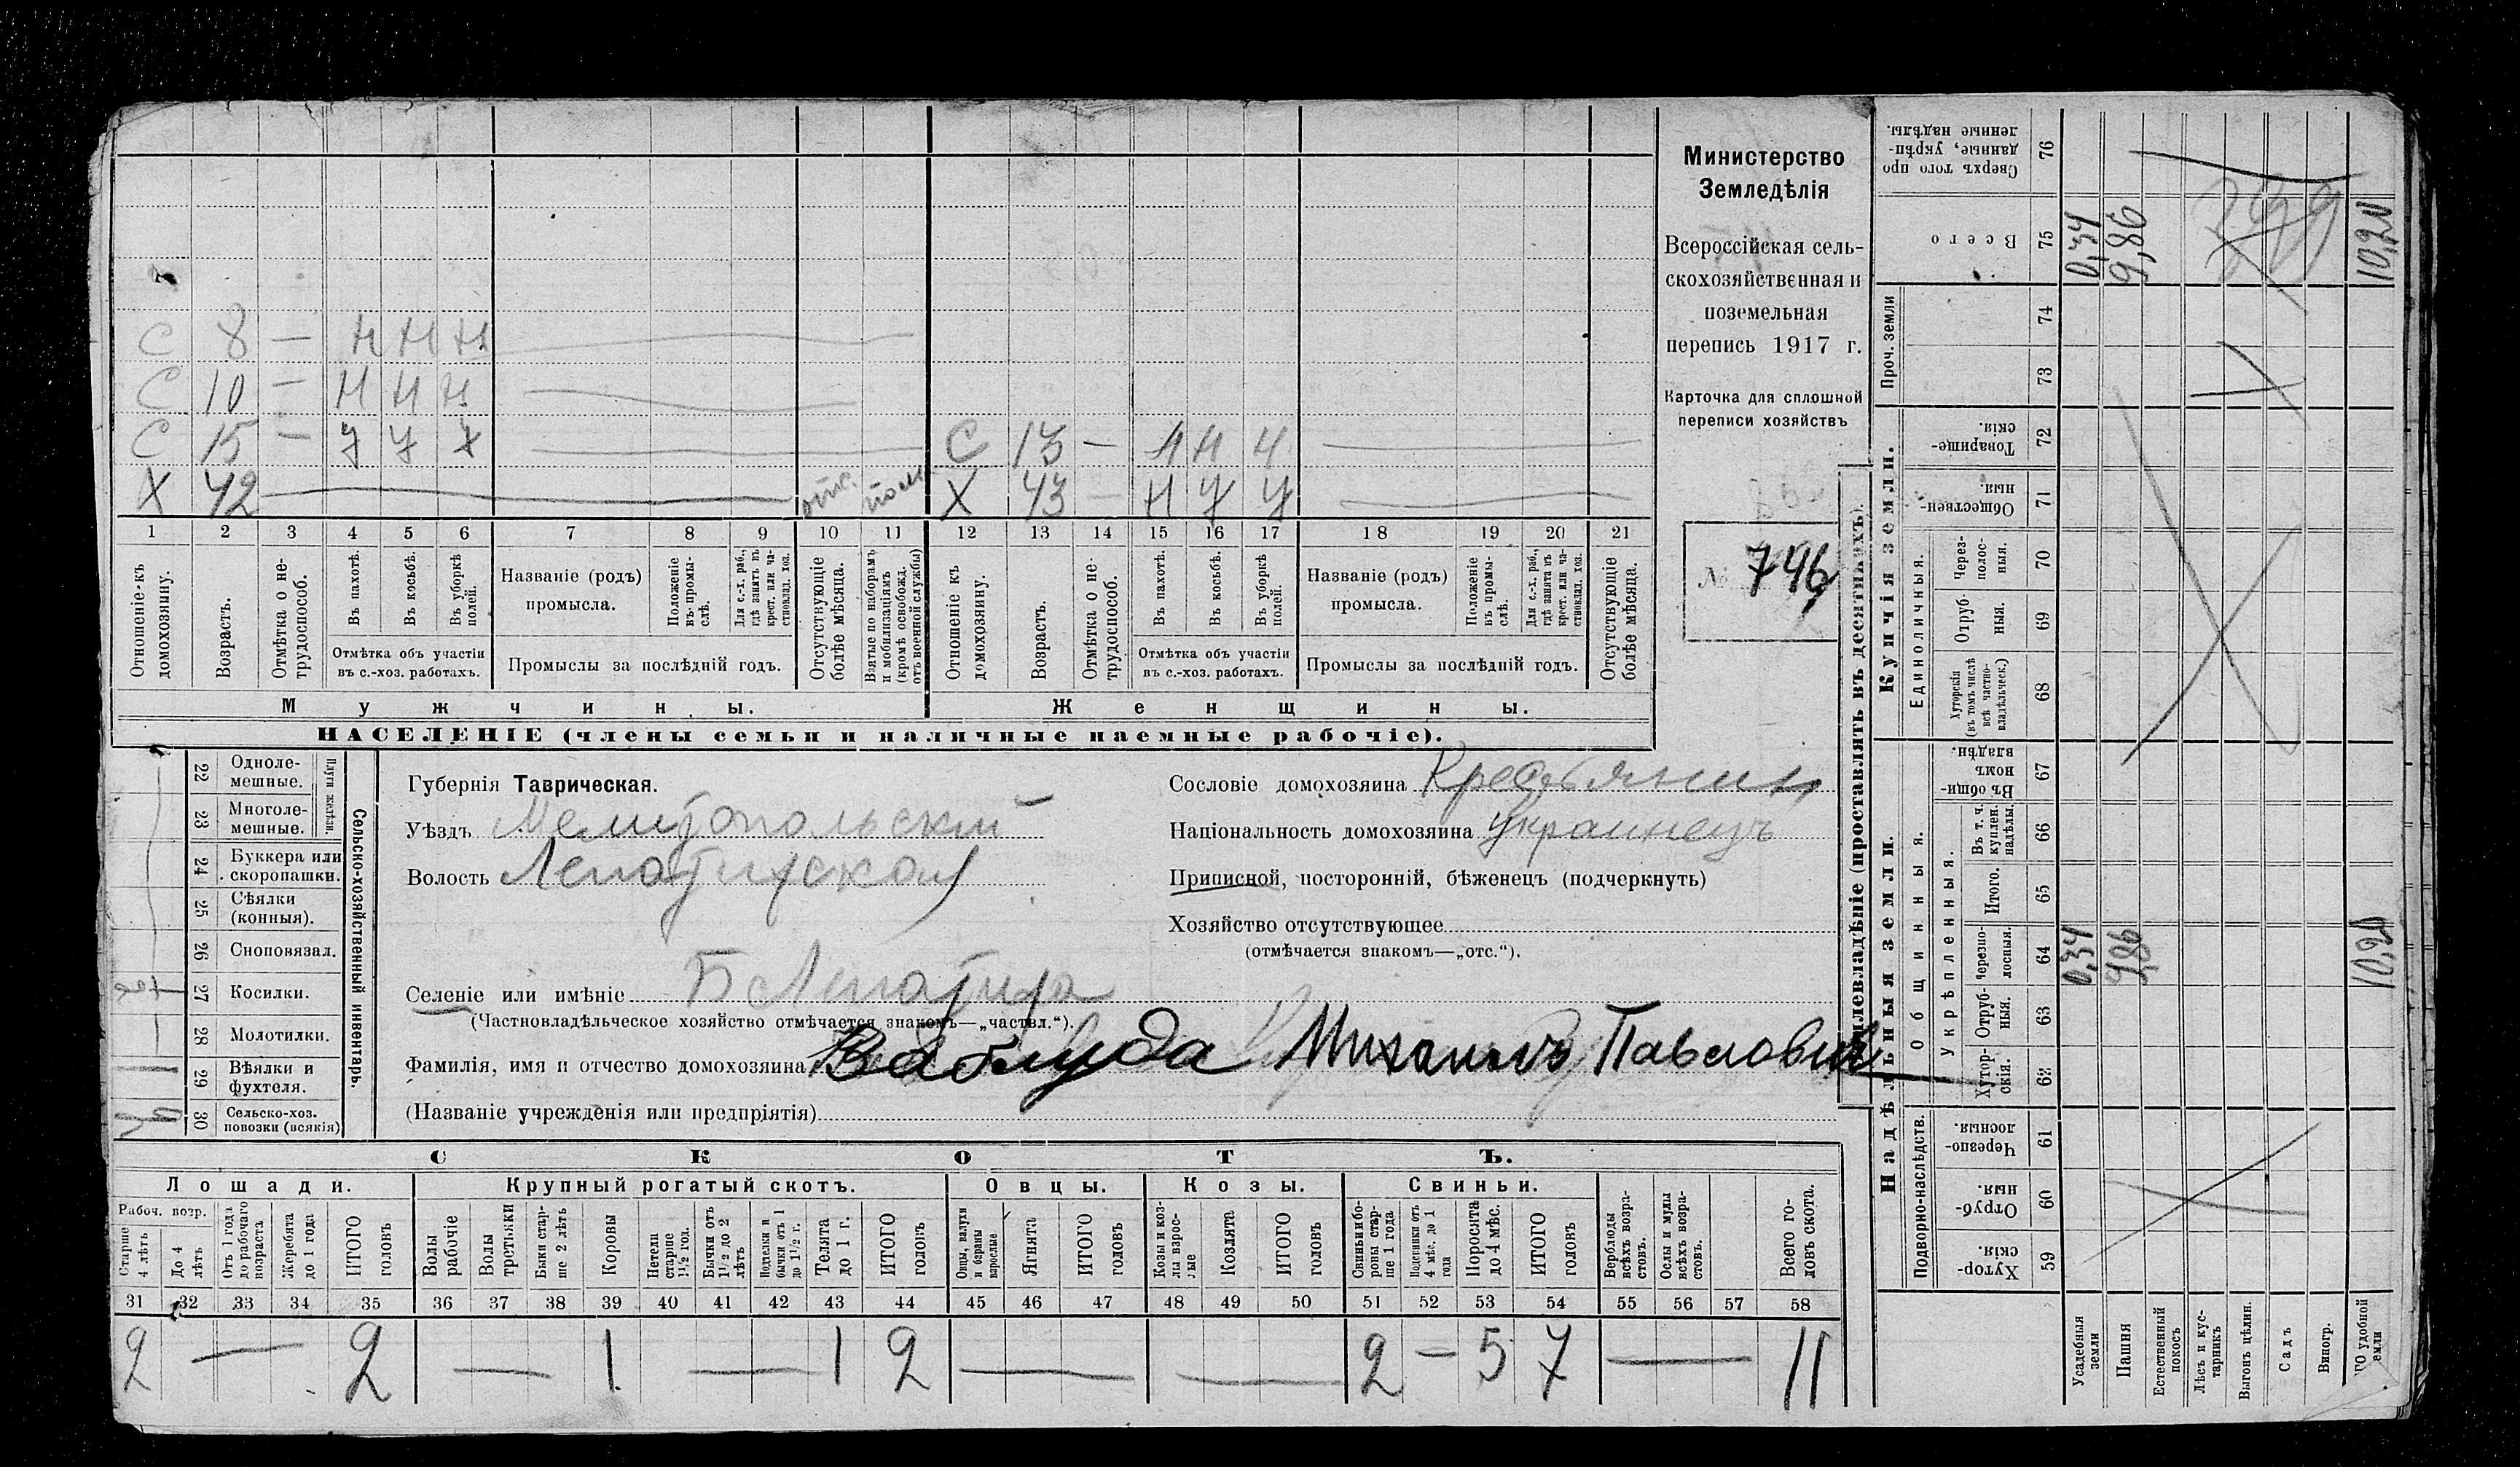 Министерство
Земледѣлія
Всероссійская сель-
скохозяйственная и
поземельная
перепись 1917 г.
Карточка для сплошной
переписи хозяйствъ
№ 746
С 8 — Н Н Н
С 10 — Н Н Н
С 15 — У У У
Х 42
С 13 — Н Н Н
Х 43 — Н У У
1 2 3 4 5 6 7 8 9 10 11 12 13 14 15 16 17 18 19 20 21
Отношеніе къ домохозяину.
Возрастъ.
Отмѣтка о не-трудоспособ.
Въ пахотѣ.
Въ косьбѣ.
Въ уборкѣ полей.
Отмѣтка объ участіи
въ с.-хоз. работахъ.
Названіе (родъ)
промысла.
Положеніе въ промы-слѣ.
Для с.-х. раб., гдѣ занятъ въ крест. или ча-стновлад. хоз.
Промыслы за послѣдній годъ.
Отсутствующіе болѣе мѣсяца.
Взятые по наборамъ и мобилизаціямъ (кромѣ освобожд. отъ военной службы)
Отношеніе къ домохозяину.
Возрастъ.
Отмѣтка о не-трудоспособ.
Въ пахотѣ.
Въ косьбѣ.
Въ уборкѣ полей.
Отмѣтка объ участіи
въ с.-хоз. работахъ.
Названіе (родъ)
промысла.
Положеніе въ промы-слѣ.
Для с.-х. раб., гдѣ занята въ крест. или ча-стновлад. хоз.
Промыслы за послѣдній годъ.
Отсутствующіе болѣе мѣсяца.
Мужчины.
Женщины.
НАСЕЛЕНІЕ (члены семьи и наличные наемные рабочіе).
Сельско-хозяйственный инвентарь.
Плуги желѣзн.
22 Одноле-мешные.
23 Многоле-мешные.
24 Буккера или скоропашки.
25 Сѣялки (конныя).
26 Сноповязал.
27 Косилки.
28 Молотилки.
29 Вѣялки и фухтеля.
30 Сельско-хоз. повозки (всякія)
Губернія Таврическая.
Уѣздъ Мелитопольскій
Волость
Селеніе или имѣніе
(Частновладѣльческое хозяйство отмѣчается знакомъ—„частвл.“).
Фамилія, имя и отчество домохозяина Ваблуда Михаилъ Павловичъ
(Названіе учрежденія или предпріятія)
Сословіе домохозяина Крестьянин
Національность домохозяина Украинецъ
Приписной, посторонній, бѣженецъ (подчеркнуть)
Хозяйство отсутствующее
(отмѣчается знакомъ—„отс.“).
СКОТЪ.
Лошади.
Крупный рогатый скотъ.
Овцы.
Козы.
Свиньи.
Рабоч. возр.
Старше 4 лѣтъ
До 4 лѣтъ
Отъ 1 года до рабочаго возраста
Жеребята до 1 года
ИТОГО головъ
Волы рабочіе
Волы третьяки
Быки стар-ше 2 лѣтъ
Коровы
Нетели старше 1½ год.
Бычки отъ 1½ до 2 лѣтъ
Подтелки и бычки отъ 1 до 1½ г.
Телята до 1 г.
ИТОГО головъ
Овцы, валухи и бараны взрослые
Ягнята
ИТОГО головъ
Козы и коз-лы взрос-лые
Козлята
ИТОГО головъ
Свиньи и бо-ровы стар-ше 1 года
Подсвинки отъ 4 мѣс. до 1 года
Поросята до 4 мѣс.
ИТОГО головъ
Верблюды всѣхъ возра-стовъ.
Ослы и мулы всѣхъ возра-стовъ.
Всего го-ловъ скота.
31 32 33 34 35 36 37 38 39 40 41 42 43 44 45 46 47 48 49 50 51 52 53 54 55 56 57 58
2 — 2 — 1 — 1 2 — — 2 — 5 7 — 11
Землевладѣніе (проставлять въ десятинахъ).
Надѣльныя земли.
Купчія земли.
Проч. земли
Подворно-наслѣдств.
Общинныя.
Укрѣпленныя.
Единоличныя.
Сверхъ того про данные, укрѣп-ленные надѣлы. 76
Всего 75 0,34 9,86 10,20
74
73
Товарище-скія. 72
Обществен-ныя. 71
Через-полос-ныя. 70
Отруб-ныя. 69
Хуторскія (въ томъ числѣ всѣ частно-владѣльческ.) 68
Въ общин-номъ владѣн. 67
Въ т. ч. куплен. надѣлы. 66
Итого. 65
Черезпо-лосныя. 64 0,34 9,86 10,20
Отруб-ныя. 63
Хутор-скія. 62
Черезпо-лосныя. 61
Отруб-ныя. 60
Хутор-скія. 59
Усадебныя земли
Пашня
Естественный покосъ
Лѣсъ и кус-тарникъ
Выгонъ цѣлин.
Садъ
Виногр.
удобной земли